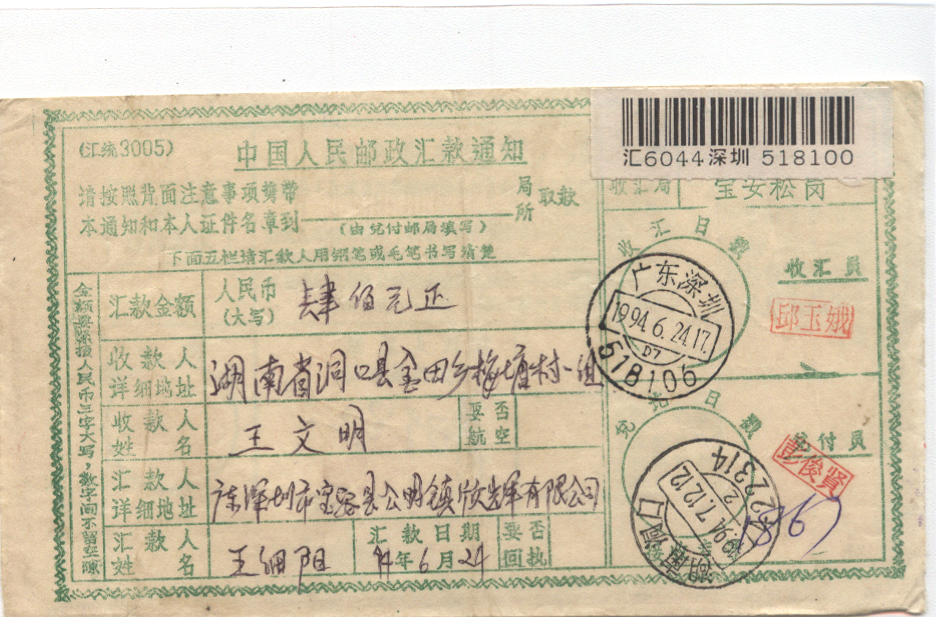 汇6044深圳 518100
(汇统3005)
中国人民邮政汇款通知
请按照背面注意事项携带
本通知和本人证件名章到
局所取款
(由兑付邮局填写)
下面五栏请汇款人用钢笔或毛笔书写清楚
收汇局
宝安松岗
收汇日戳
收汇员
邱玉娥
广东深圳
1994.6.24.17
07
518106
汇款金额
人民币
(大写)
肆佰元正
收款人
详细地址
湖南省洞口县金田乡梅塘村一组
收款人
姓名
王文明
要否
航空
汇款人
详细地址
广东深圳市宝安县公明镇欣光军有限公司
汇款人
姓名
王细阳
汇款日期
94年6月24
要否
回执
兑付日戳
兑付员
彭俊贤
1994.7.12.12
2
422314
湖南洞口
金额要紧接人民币三字大写，数字间不留空隙